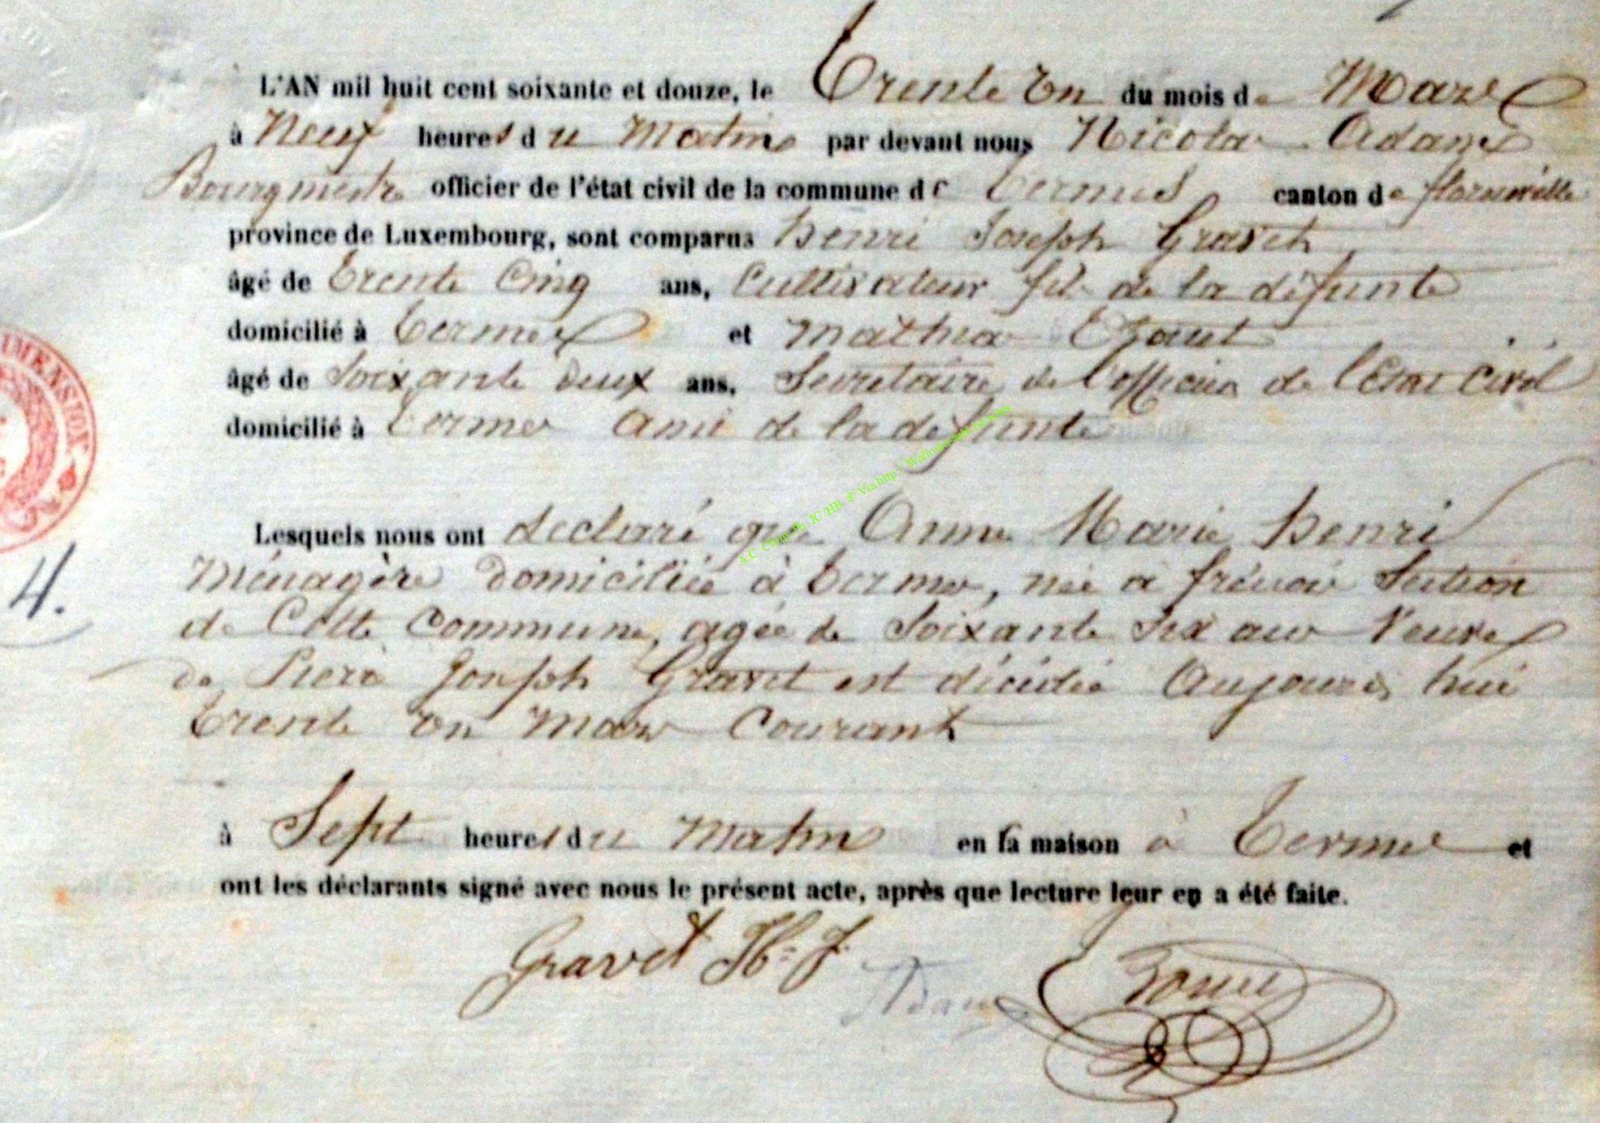 L'AN mil huit cent soixante et douze, le Trente un du mois de Mars
à Neuf heures du Matin par devant nous Nicolas Adam
Bourgmestre officier de l'état civil de la commune de Termes canton de florenville
province de Luxembourg, sont comparus henri Joseph Gravet
âgé de trente Cinq ans, Cultivateur fils de la défunte
domicilié à termes et Mathias
âgé de Soixante deux ans, Secrétaire de l'officier de l'Etat Civil
domicilié à termes ami de la défunte
Lesquels nous ont declaré que Anne Marie henri
Ménagère domiciliée à termes, née à frénois Section
de Cette Commune, agée de Soixante Six ans Veuve
de Pierre Joseph Gravet est décédée Aujourd'hui
trente un Mars Courant
4.
à Sept heures du Matin en sa maison à Termes et
ont les déclarants signé avec nous le présent acte, après que lecture leur en a été faite.
Gravet H. J. Adam
DIMENSION